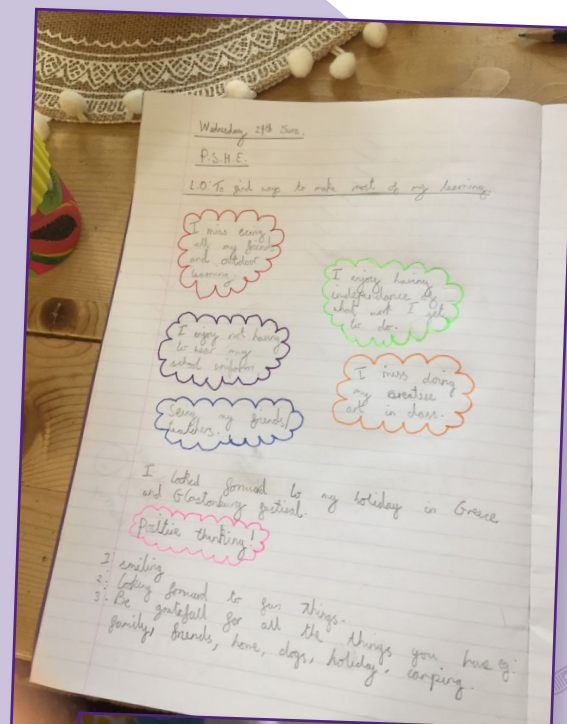 Wednesday 24th June.
P.S.H.E.
L.O: To find ways to make most of my learning
I miss seeing
all my friends
and outdoor
learning
I enjoy having
independance of
what work I get
to do.
I enjoy not having
to wear my
school uniform
I miss doing
my creative
art in class.
Seeing my friends/
teachers.
I looked forward to my holiday in Greece
and Glastonbury festival.
Positive thinking!
1. smiling
2. looking forward to fun things.
3. Be gratefull for all the things you have eg:
family, friends, home, dogs, holiday, camping.